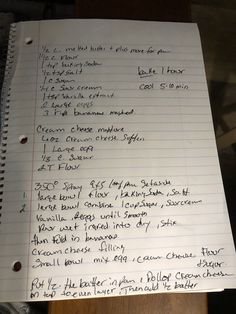 1/2 c. melted butter + plus more for pan
1/2 c Flour
1 tsp baking soda
1/2 tsp salt
1 c sugar
1/2 c Sour cream
1 tsp Vanilla extract
2 large eggs
3 ripe bananas mashed
bake 1 hour
cool 5-10 min
Cream cheese mixture
4 oz Cream cheese soften
1 Large egg
1/3 c. Sugar
2 T Flour
350° Spray 9x5 loaf pan Set aside
1 large bowl flour, baking soda, salt
2 large bowl combine 1 cup sugar, sour cream
Vanilla, eggs until smooth
Pour wet ingred into dry, stir
then fold in bananas
Cream cheese filling
Small bowl mix egg, cream cheese Flour
+ sugar
Put 1/2 the batter in pan, Dollop Cream cheese
on top to even layer. Then add 1/2 batter